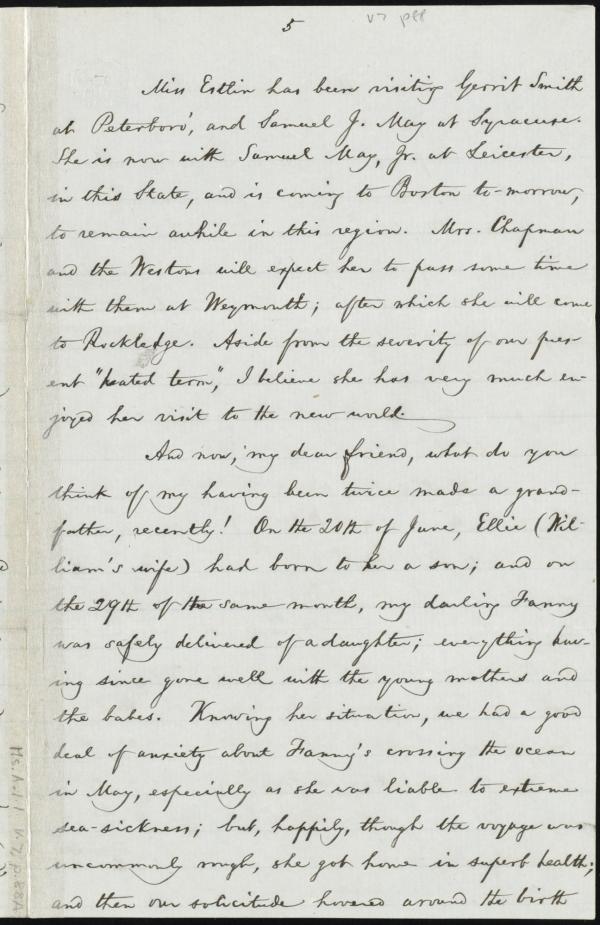 5
v7 p88
Miss Estlin has been visiting Gerrit Smith
at Peterboro', and Samuel J. May at Syracuse.
She is now with Samuel May, Jr. at Leicester,
in this State, and is coming to Boston to-morrow,
to remain awhile in this region. Mrs. Chapman
and the Westons will expect her to pass some time
with them at Weymouth; after which she will come
to Rockledge. Aside from the severity of our pres-
ent "heated term," I believe she has very much en-
joyed her visit to the new world.
And now, my dear friend, what do you
think of my having been twice made a grand-
father, recently! On the 20th of June, Ellie (Wil-
liam's wife) had born to her a son; and on
the 29th of the same month, my darling Fanny
was safely delivered of a daughter; everything hav-
ing since gone well with the young mothers and
the babes. Knowing her situation, we had a good
deal of anxiety about Fanny's crossing the ocean
in May, especially as she was liable to extreme
sea-sickness; but, happily, though the voyage was
uncommonly rough, she got home in superb health;
and then our solicitude hovered around the birth
Ms.A.1.1 v.7, p.88A